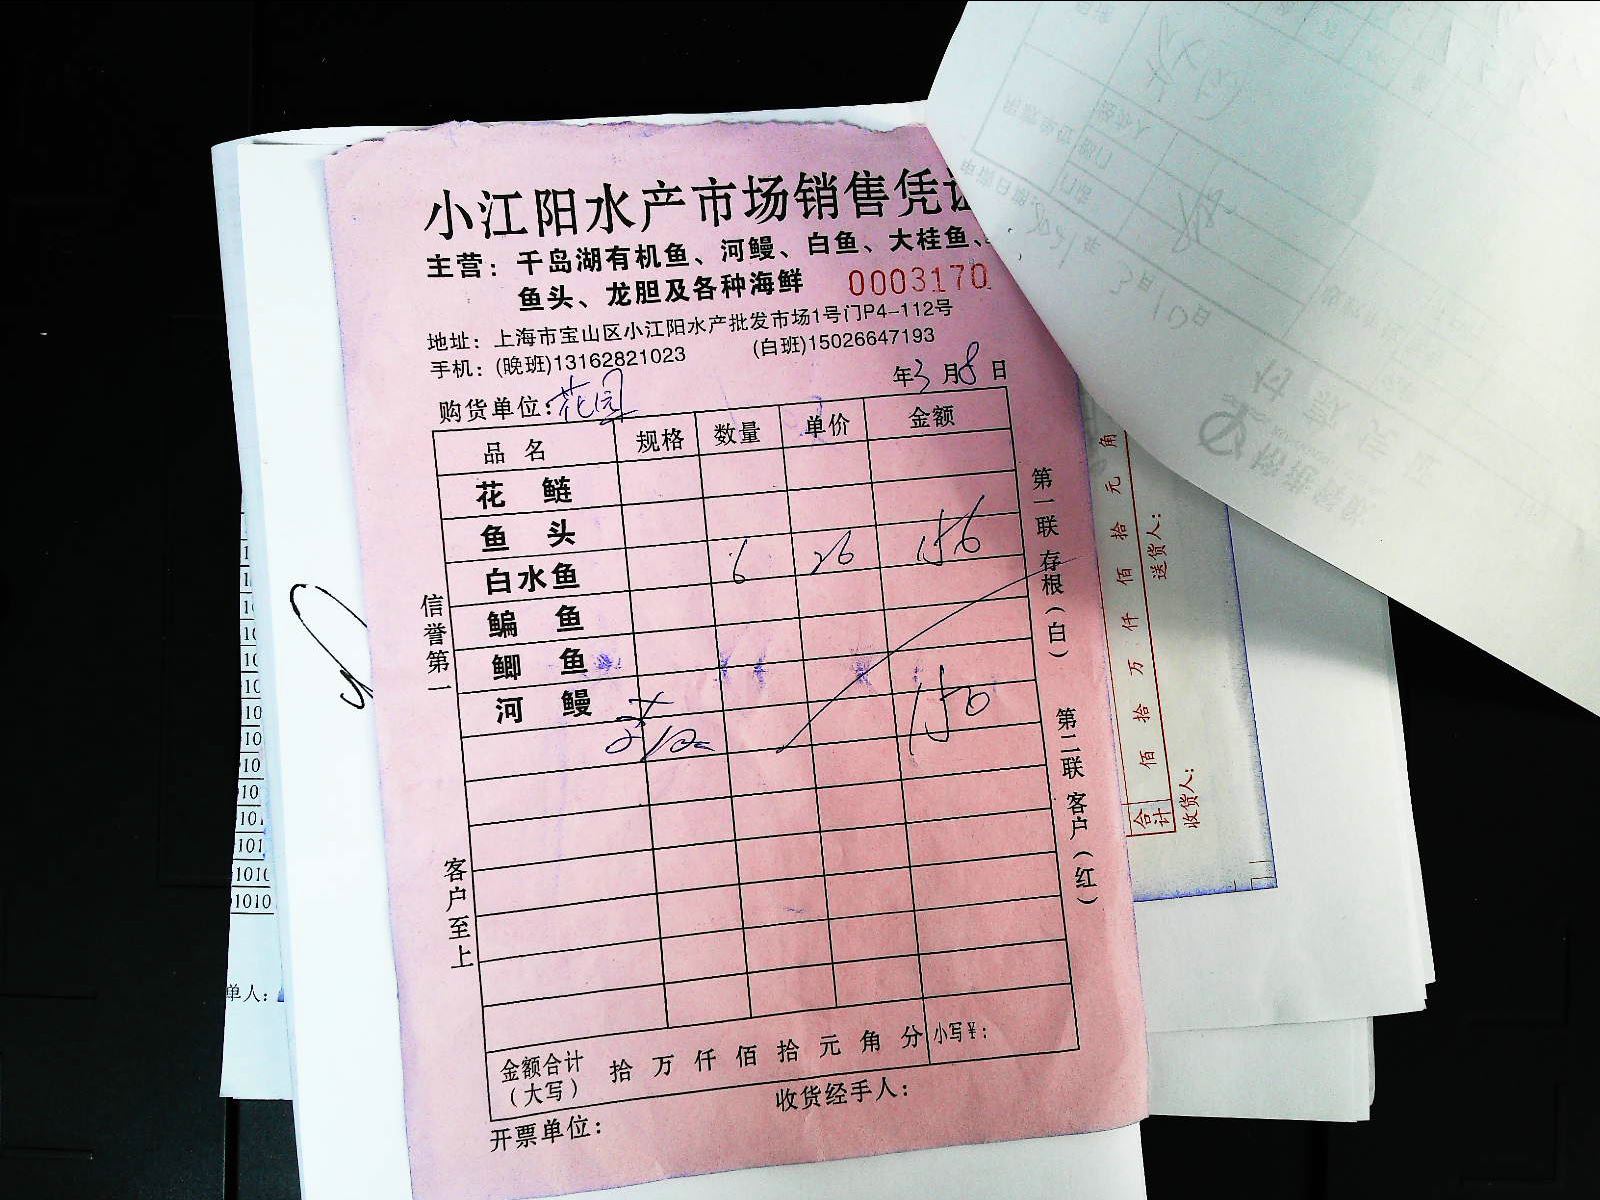 小江阳水产市场销售凭证
主营：千岛湖有机鱼、河鳗、白鱼、大桂鱼、
鱼头、龙胆及各种海鲜
0003170
地址：上海市宝山区小江阳水产批发市场1号门P4-112号
手机：(晚班)13162821023 (白班)15026647193
购货单位：花园 年3月8日
品名 规格 数量 单价 金额
花鲢
鱼头
白水鱼 6 26 156
鳊鱼
鲫鱼
河鳗
150
金额合计（大写） 拾万仟佰拾元角分 小写¥：
收货经手人：
开票单位：
信誉第一
客户至上
第一联 存根（白）
第二联 客户（红）
合计 佰拾万仟佰拾元角
送货人：
收货人：
单人：
1010
1010